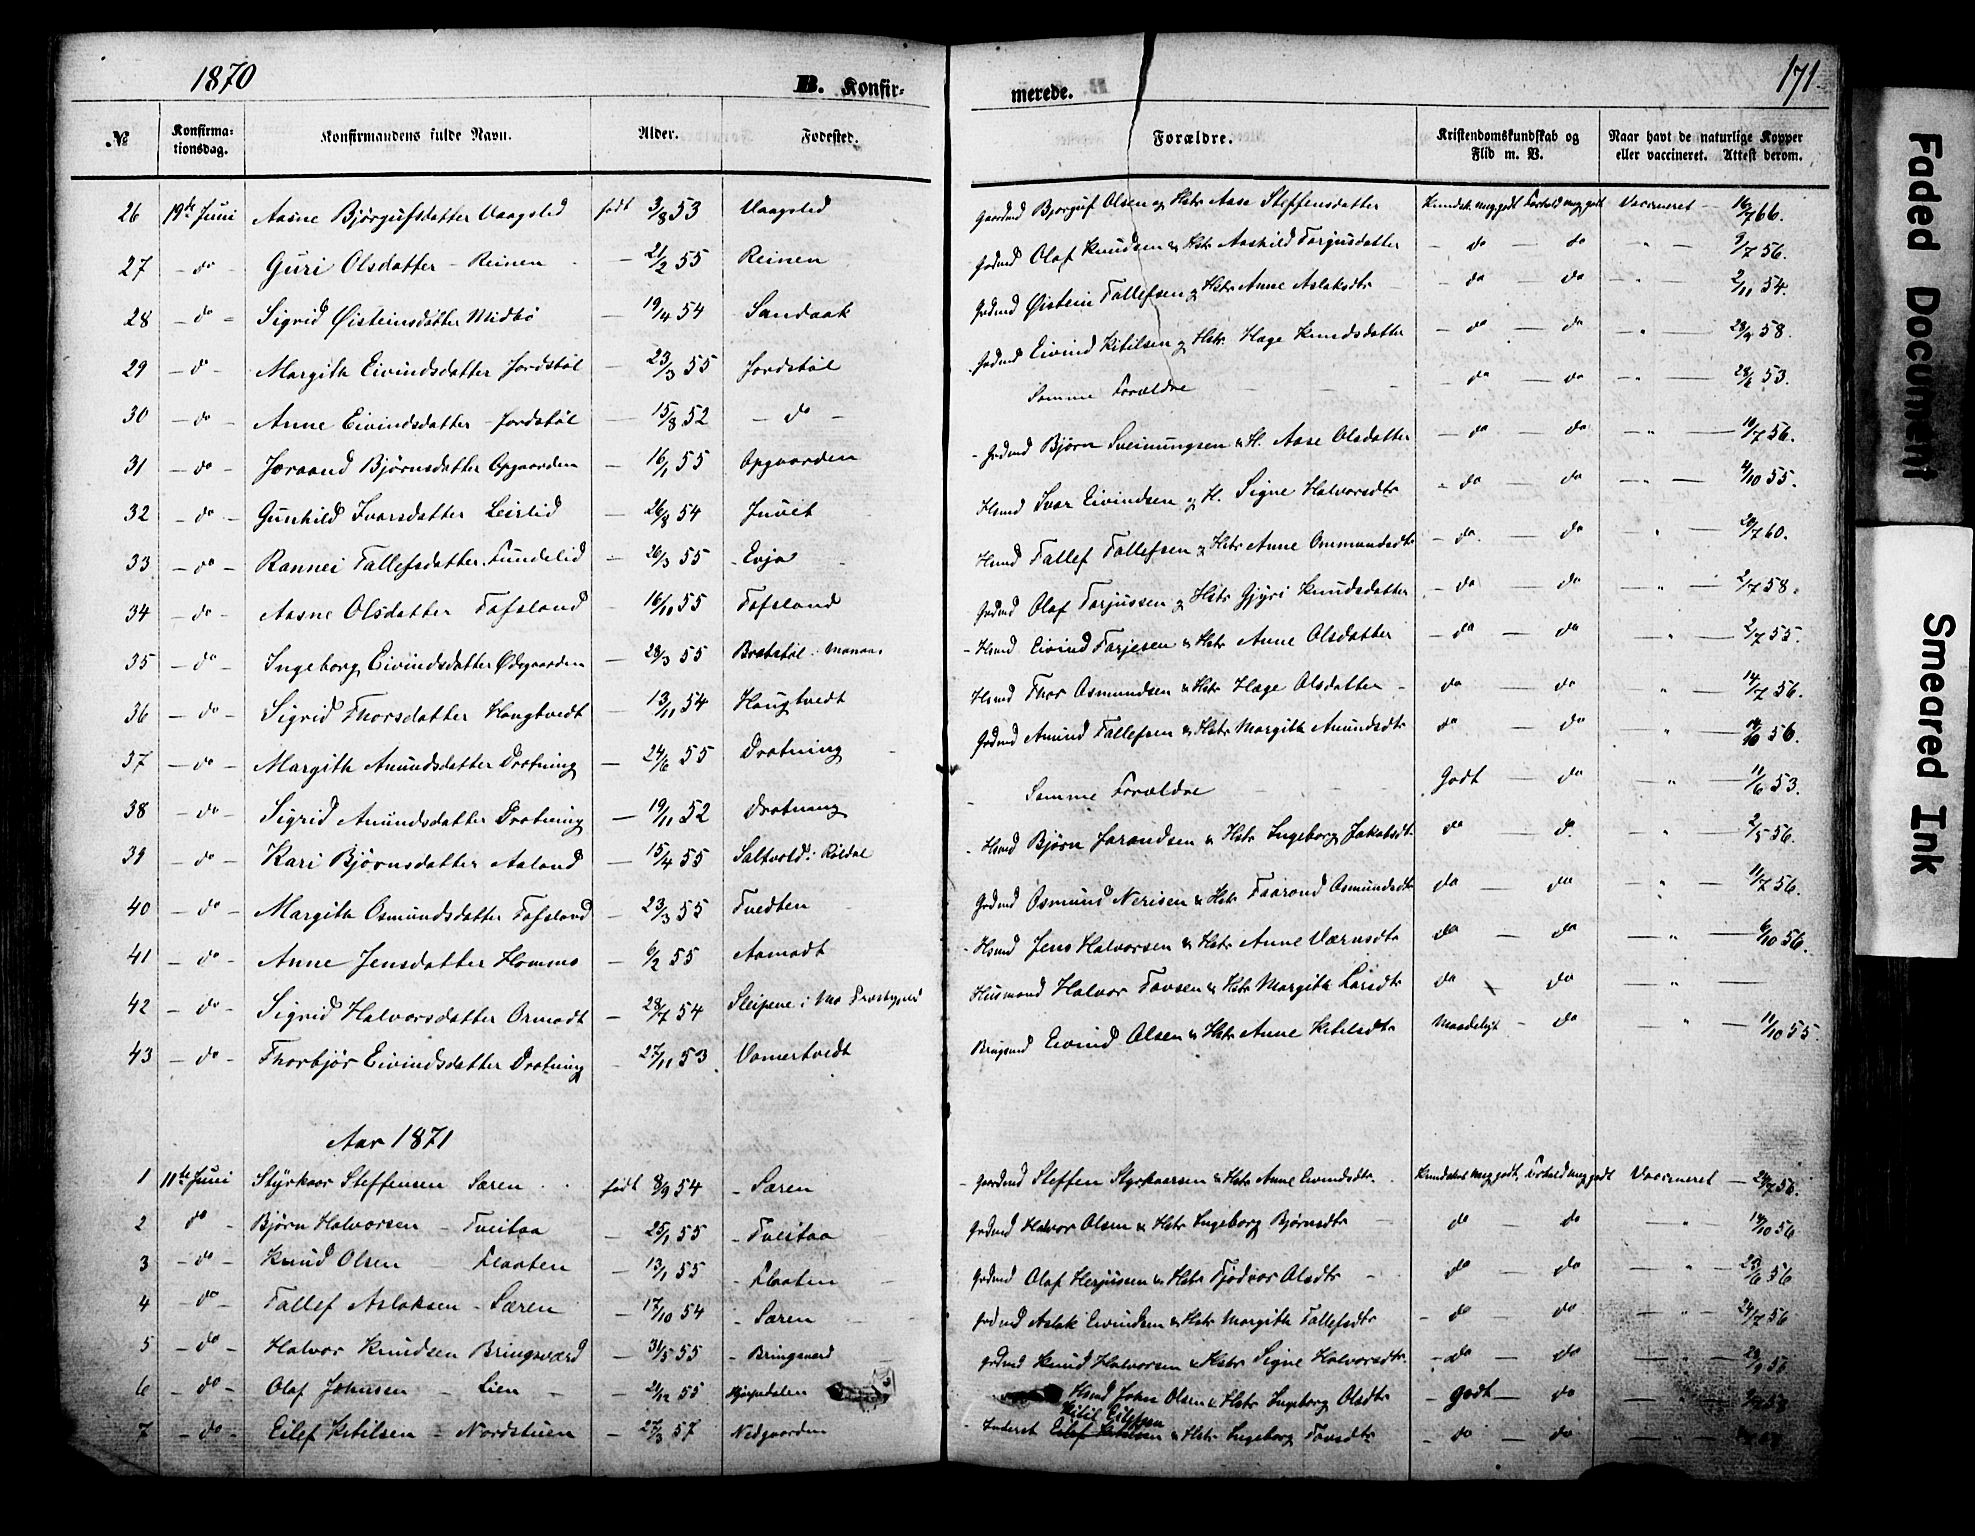 1870 B. Konfir=
merede. 171.
№ Konfirma=tionsdag. Konfirmandens fulde Navn. Alder. Fødested. Forældre. Kristendomskundskab og Flid m. V. Naar havt de naturlige Kopper eller vaccineret. Attest derom.
26 19de Juni Aasne Bjørgufsdatter Vaagslid født 3/8 53 Vaagslid Gaardmd Bjørguf Olsen og Hstr Aase Steffensdatter Kundsk. meg godt Forhold meg godt Vaccineret 16/7 66.
27 - do - Guri Olsdatter - Reinen - 21/2 55 Reinen Grdmd Olaf Knudsen & Hstr Aashild Targjusdatter - do - do - " - 9/7 56.
28 - do - Sigrid Øisteinsdatter Midbö - 19/4 54 Sandaak Grdmd Øistein Tallefsen og Hstr Anne Aslaksdtr - do - do - " - 2/11 54.
29 - do - Margith Eivindsdatter Jordstøl - 23/3 55 Jordstøl Grdmd Eivind Kitilsen og Hstr. Hæge Knudsdatter - do - do - " - 58.
30 - do - Anne Eivindsdatter - Jordstøl - 15/8 52 - do - Samme Forældre - do - do - " - 28/6 53.
31 - do - Joraand Bjørnsdatter Opgaarden - 16/1 55 Opgaarden - Grdmd Bjørn Sveinungsen & H. Aase Olsdatter - do - do - " - 10/7 56.
32 - do - Gunhild Ivarsdatter Leirlid - 26/8 54 Juvet Hsmd Ivar Eivindsen og H. Signe Halvorsdtr - do - do - " - 4/10 55.
33 - do - Rannei Tallefsdatter Fundelid - 26/3 55 Evju Hsmd Tallef Tallefsen og Hstr Anne Ommundsdtr - do - do " - 20/7 60.
34 - do - Aasne Olsdatter Tofsland - 16/10 55 Tofsland Grdmd Olaf Tarjussen og Hstr Gjyri Knudsdatter - do - do - " - 2/7 58.
35 - do - Ingeborg Eivindsdatter Ødegaarden - 28/3 55 Bratstøl i - Hsmd Eivind Tarjesen & Hstr Anne Olsdatter - do - do " - 2/7 55.
36 - do - Sigrid Thorsdatter Haugtvedt - 13/11 54 Haugtvedt Hsmd Thor Osmundsen & Hstr Hæge Olsdatter - do - do " - 14/7 56.
37 - do - Margith Amundsdatter Drotning - 24/6 55 Drotning Grdmd Amund Tallefsen & Hstr Margith Amundsdtr do - do " - 56.
38 - do - Sigrid Amundsdatter Drotning - 19/11 52 Drotning - Samme Forældre Godt - do " - 11/6 53.
39 - do - Kari Bjørnsdatter Aaland - 15/4 55 Saltvold i Røldal - Hsmd Bjørn Jorandsen & Hstr Ingeborg Jakobsdtr. do - do " - 2/5 56.
40 - do - Margith Osmundsdatter Tofsland - 23/3 55 Tvedten Grdmd Osmund Nerisen & Hstr Taarond Osmundsdtr do - do " - 11/7 56.
41 - do - Anne Jensdatter Hommo - 6/2 55 Aamodt - Hsmd Jens Halvorsen & Hstr Anne Værnsdtr do - do - " - 6/10 56.
42 - do - Sigrid Halvorsdatter Ormodt - 28/7 54 Sleipene i Mo Husmand Halvor Tovsen & Hstr Margith Larsdtr do - do - " -
43 - do - Thorbjør Eivindsdatter Drotning - 27/11 53 Vamertvedt Brugsmd Eivind Olsen & Hstr Anne Ketilsdtr Maadeligt - do " - 11/10 55.
Aar 1871
1 11te Juni Styrkaar Steffensen Særen født 8/9 54 - Særen - Gaardmd Steffen Styrkaarsen & Hstr Anne Eivindsdtr. Kundskab meg godt, Forhold meg godt Vaccineret - 24/7 56.
2 do - Bjørn Halvorsen - Tveitaa - 25/1 55 - Tveitaa Grdmd Halvor Olsen & Hstr Ingeborg Bjørnsdtr - do - do " - 14/10 56
3 - do - Knud Olsen - Flaaten - 13/1 55 - Flaaten Grdmd Olaf Herjusen & Hstr Tjødvor Olsdtr - do - do - " - 23/6 56
4 - do - Tallef Aslaksen - Særen - 17/10 54 - Særen Grdmd Aslak Eivindsen & Hstr Margith Tallefsdtr - do - do - " - 24/7 56
5 - do - Halvor Knudsen Bringsværd - 31/5 55 - Bringsværd Grdmd Knud Halvorsen & Hstr Signe Halvorsdtr. - do - do - " - 56
6 - do - Olaf Johnsen - Lien - - 21/12 55 Hjærpedalen Hsmd John Olsen & Hstr Ingeborg Olsdtr - Godt - do - " -
Kitil Eilefsen
7 - do - Eilef Kitilsen - Nordstuen - 27/3 57 Nedgaarden - Inderst Eilef Kitilsen & Hstr Ingeborg Tovsdtr - do - do - " -
Faded Document
Smeared Ink